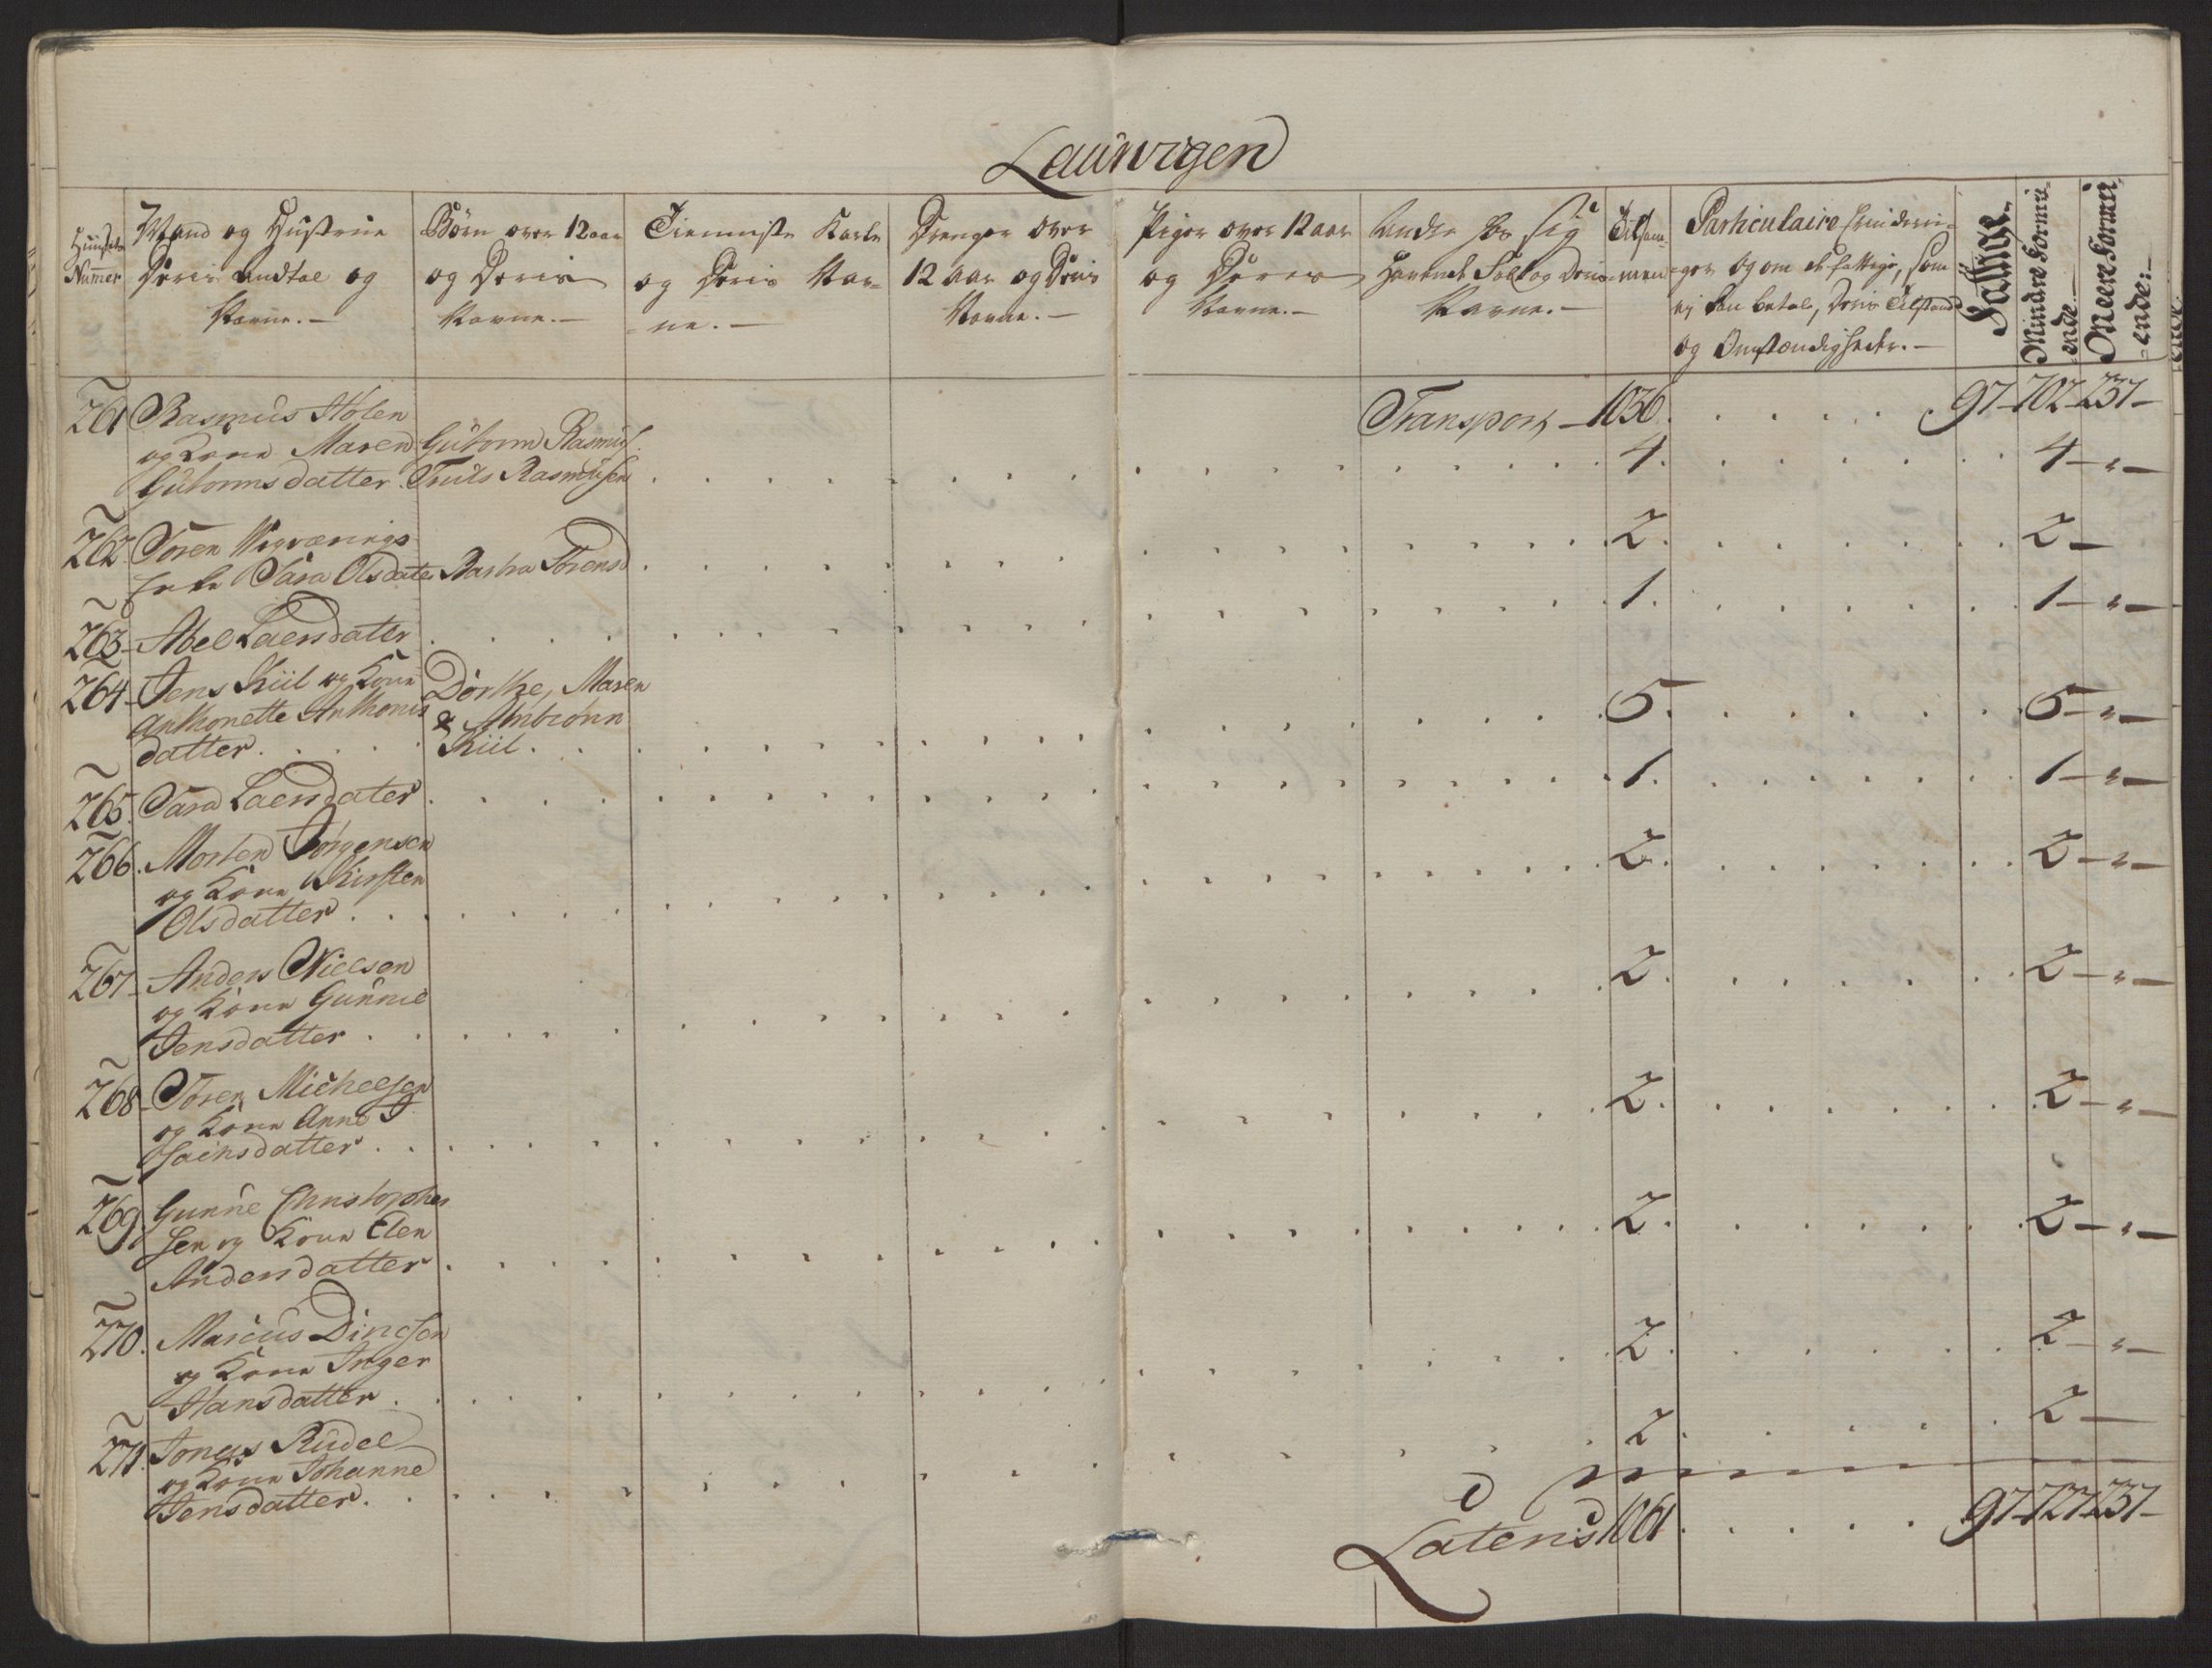 Laurvigen
Huusets Nummer
Mand og Hustrue
Deres Andtal og
Navne.
Børn over 12 aar
og Deres
Navne.
Tienniste Karle
og Deres Nav-
ne.
Drenger over
12 aar og Deres
Navne.
Piger over 12 aar
og Deres
Navne.
Andre for sig
Havende Folk og Deres
Navne.
Tilsam-
men
Particulaire Erindrin-
ger og om de fattige, som
ej kan betale, Deres Tilstand
og Omstændigheder.
Fattige
Mindre Formu-
ende.
Meere Formu-
ende:
Transport 1036 97 702 237
261 Rasmus Holen
og Kone Maren Gutorm Rasmus.
Gutormsdatter. Truls Rasmusen 4. 4
262 Søren
Enke Sara Olsdater Søronsd 2. 2
263 Abel Laersdater 1. 1
264 Jens Kiil og Kone Dorthe, Maren
Anthonette Anthonis &
datter. Kiil. 5. 5
265. Sara Laersdater 1. 1
266. Morten Jørgensen
og Kone Kirsten
Olsdatter. 2. 2
267 Anders Nielsen
og Kone Gunnie
Jensdatter 2. 2
268 Søren Michelsen
og Kone Anne
datter. 2. 2
269. Gunne Christopher
sen og Kone Elen
Andersdatter. 2. 2
270. Marcus
og Kone Inger
Hansdatter. 2. 2
271. Jonas Rudel
og Kone Johanne
Jensdatter. 2. 2
Latens 1061 97 727 237